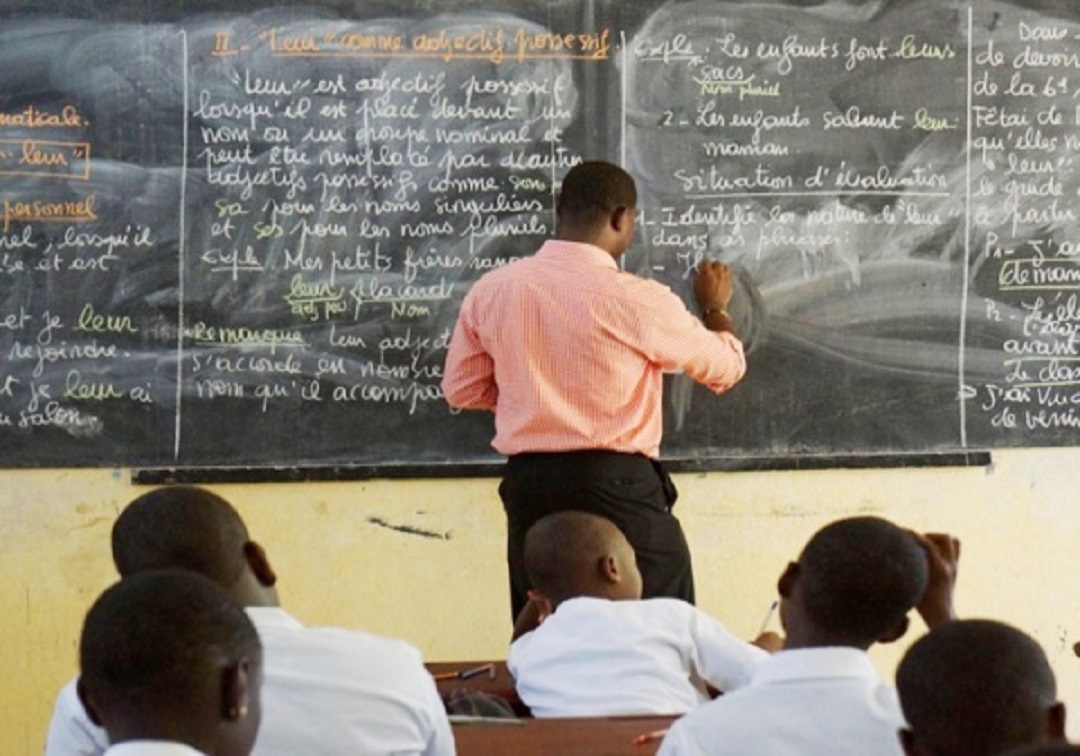 maticale.
"leur"
personnel
nel, lorsqu'il
et est
et je leur
rejoindre.
t je leur ai
salon.
II - "Leur" comme adjectif possessif.
"Leur" est adjectif possessif
lorsqu'il est placé devant un
nom ou un groupe nominal et
peut être remplacé par d'autres
adjectifs possessifs comme son
sa pour les noms singuliers
et ses pour les noms pluriels.
Exple. Mes petits frères
leur placard
adj pos Nom
Remarque Leur adject
s'accorde en nombre
nom qu'il accompa
Exple. 1- Les enfants font leurs
sacs
Nom pluriel
2 - Les enfants saluent leur
maman.
Situation d'évaluation
1- Identifie la nature de "leur"
dans ces phrases:
-
de devoir
de la 6è
qu'elles n
"leur"
le guide
à partir
P1 - J'ai
deman
P2 -
avant
J'ai vu
de venir